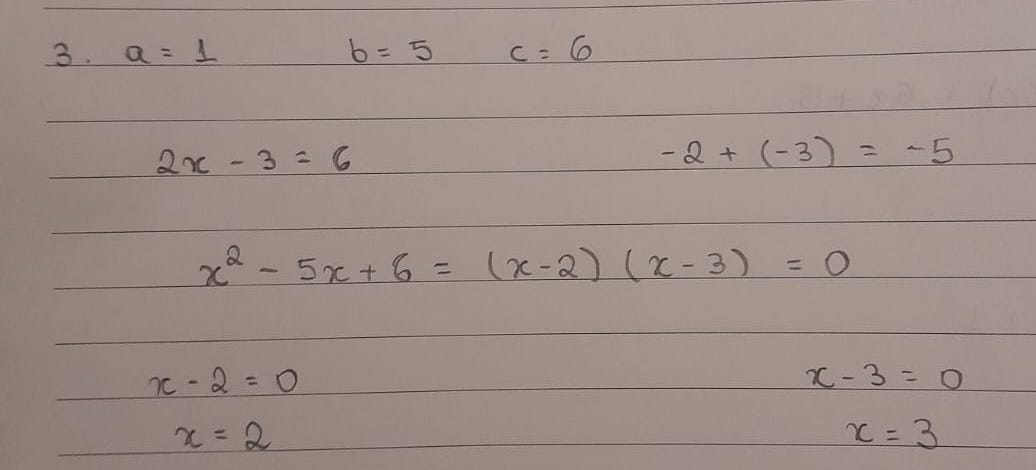 3. a = 1 b = 5 c = 6
2x - 3 = 6 -2 + (-3) = -5
x² - 5x + 6 = (x-2) (x-3) = 0
x - 2 = 0 x - 3 = 0
x = 2 x = 3